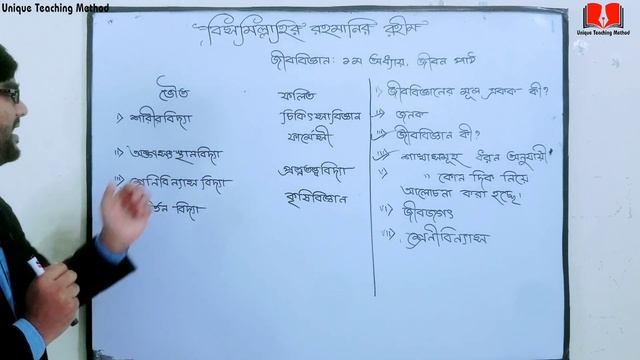 Unique Teaching Method
Unique Teaching Method
বিসমিল্লাহির রহমানির রহীম
জীববিজ্ঞান: ১ম অধ্যায়, জীবন পাঠ
ভৌত
i) শারীরবিদ্যা
ii)
iii) শ্রেণিবিন্যাস বিদ্যা
বিদ্যা
ফলিত
চিকিৎসাবিজ্ঞান
ফার্মেসী
প্রত্নতত্ত্ববিদ্যা
কৃষিবিজ্ঞান
i) জীববিজ্ঞানের মূল একক কী?
ii) জনক
iii) জীববিজ্ঞান কী?
iv) শাখাসমূহ ধরন অনুযায়ী
v) " কোন দিক নিয়ে
আলোচনা করা হচ্ছে।
vi) জীবজগৎ
vii) শ্রেনীবিন্যাস